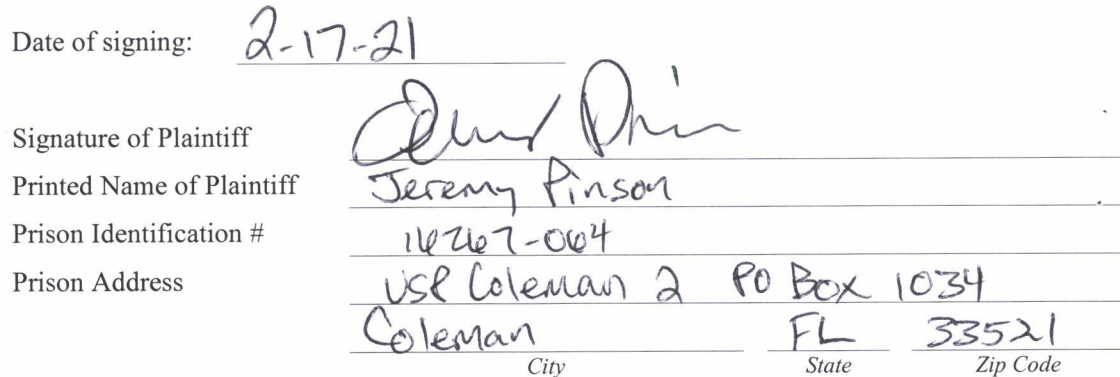 Date of signing: 2-17-21
Signature of Plaintiff
Printed Name of Plaintiff Jeremy Pinson
Prison Identification # 16267-064
Prison Address USP Coleman 2 PO Box 1034
Coleman FL 33521
City State Zip Code